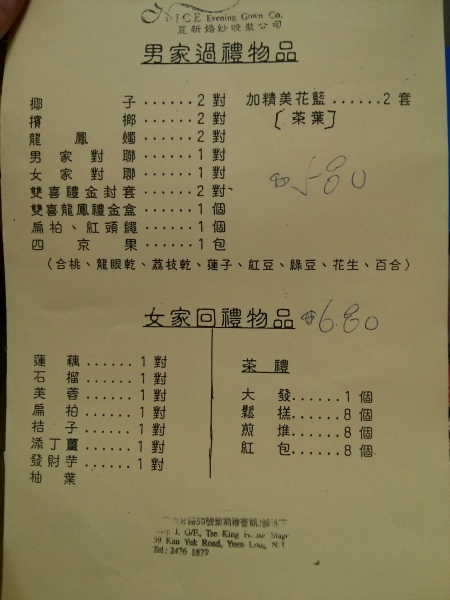 NICE Evening Gown Co.
麗新婚紗晚裝公司
男家過禮物品
椰子......2對
檳榔......2對
龍鳳燭......2對
男家對聯......1對
女家對聯......1對
雙喜禮金封套......2對
雙喜龍鳳禮金盒......1個
扁柏、紅頭繩......1個
四京果......1包
加精美花籃......2套
[茶葉]
580
(合桃、龍眼乾、荔枝乾、蓮子、紅豆、綠豆、花生、百合)
女家回禮物品
$680
蓮藕......1對
石榴......1對
芙蓉......1對
扁柏......1對
桔子......1對
添丁薑......1對
發財芋......1對
柚葉
茶禮
大發......1個
鬆糕......8個
煎堆......8個
紅包......8個
Shop J, G/F., Tse King House Stage
59 Kau Yuk Road, Yuen Long, N.T.
Tel: 2476 1877